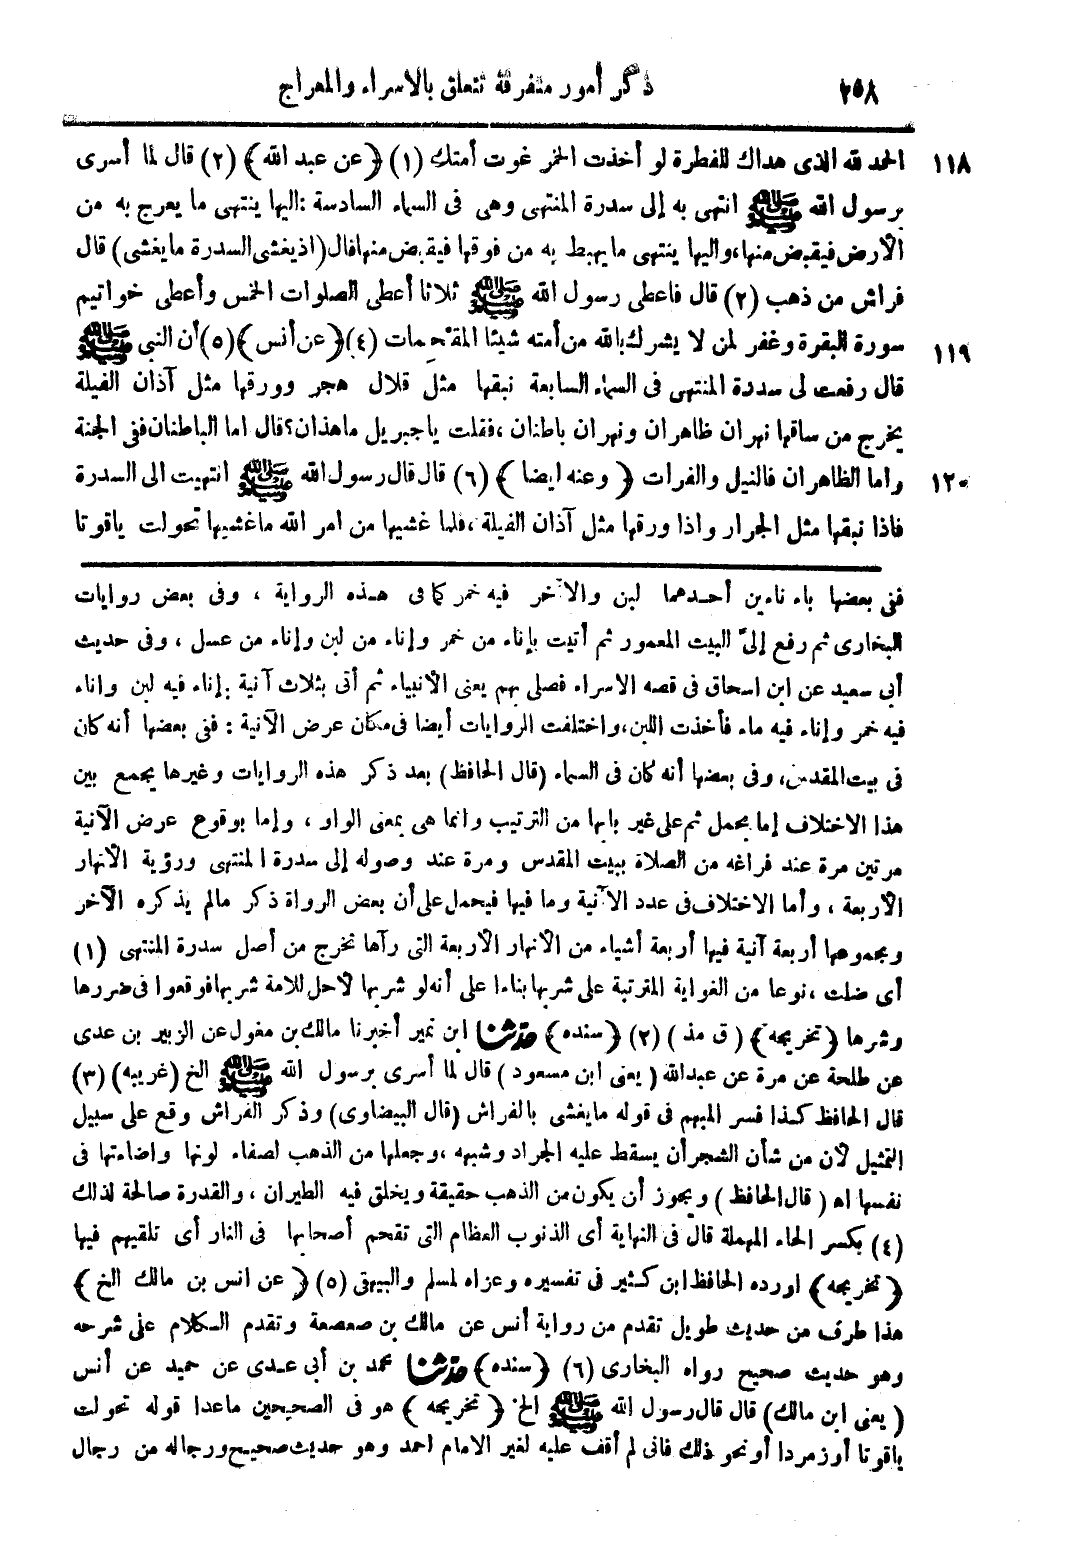 ٢٥٨ ذكر أمور متفرقة تتعلق بالاسراء والمعراج
١١٨ الحمد لله الذى هداك للفطرة لو أخذت الخمر غوت أمتك (١) (عن عبد الله) (٢) قال لما أسرى
برسول الله ﷺ انتهى به إلى سدرة المنتهى وهى فى السماء السادسة :اليها ينتهى ما يعرج به من
الأرض فيقبض منها، واليها ينتهى ما يهبط به من فوقها فيقبض منها قال (اذ يغشى السدرة ما يغشى) قال
فراش من ذهب (٣) قال فاعطى رسول الله ﷺ ثلاثا أعطى الصلوات الخمس وأعطى خواتيم
١١٩ سورة البقرة وغفر لمن لا يشرك بالله من أمته شيئا المقحِمات (٤) (عن أنس) (٥) أن النبى ﷺ
قال رفعت لى سدرة المنتهى فى السماء السابعة نبقها مثل قلال هجر وورقها مثل آذان الفيلة
يخرج من ساقها نهران ظاهران ونهران باطنان ،فقلت ياجبريل ماهذان؟ قال اما الباطنان ففى الجنة
١٢٠ واما الظاهران فالنيل والفرات (وعنه ايضا) (٦) قال قال رسول الله ﷺ انتهيت الى السدرة
فاذا نبقها مثل الجرار واذا ورقها مثل آذان الفيلة ،فلما غشيها من امر الله ماغشيها تحولت ياقوتا
ففى بعضها باناءين أحدهما لبن والآخر فيه خمر كما فى هذه الرواية ، وفى بعض روايات
البخارى ثم رفع إلىّ البيت المعمور ثم أتيت بإناء من خمر وإناء من لبن وإناء من عسل ، وفى حديث
أبى سعيد عن ابن اسحاق فى قصه الاسراء فصلى بهم يعنى الأنبياء ثم أتى بثلاث آنية إناء فيه لبن واناء
فيه خمر وإناء فيه ماء فأخذت اللبن، واختلفت الروايات أيضا فى مكان عرض الآنية : ففى بعضها أنه كان
فى بيت المقدس، وفى بعضها أنه كان فى السماء (قال الحافظ) بعد ذكر هذه الروايات وغيرها يجمع بين
هذا الاختلاف إما بحمل ثم على غير بابها من الترتيب وانما هى بمعنى الواو ، وإما بوقوع عرض الآنية
مرتين مرة عند فراغه من الصلاة ببيت المقدس ومرة عند وصوله إلى سدرة المنتهى ورؤية الأنهار
الأربعة ، وأما الاختلاف فى عدد الآنية وما فيها فيحمل على أن بعض الرواة ذكر مالم يذكره الآخر
ومجموعها أربعة آنية فيها أربعة أشياء من الأنهار الأربعة التى رآها تخرج من أصل سدرة المنتهى (١)
أى ضلت ،نوعا من الغواية المترتبة على شربها بناءا على أنه لو شربها لأحل للامة شربها فوقعوا فى ضررها
وشرها (تخريجه) (ق مذ) (٢) (سنده) حدثنا ابن نمير أخبرنا مالك بن مغول عن الزبير بن عدى
عن طلحة عن مرة عن عبدالله (يعنى ابن مسعود) قال لما أسرى برسول الله ﷺ الخ (غريبه) (٣)
قال الحافظ كذا فسر المبهم فى قوله مايغشى بالفراش (قال البيضاوى) وذكر الفراش وقع على سبيل
التمثيل لأن من شأن الشجر أن يسقط عليه الجراد وشبهه ،وجعلها من الذهب لصفاء لونها واضاءتها فى
نفسها اه (قال الحافظ) ويجوز أن يكون من الذهب حقيقة ويخلق فيه الطيران ، والقدرة صالحة لذلك
(٤) بكسر الحاء المهملة قال فى النهاية أى الذنوب العظام التى تقحم أصحابها فى النار أى تلقيهم فيها
(تخريجه) اورده الحافظ ابن كثير فى تفسيره وعزاه لمسلم والبيهقى (٥) (عن انس بن مالك الخ)
هذا طرف من حديث طويل تقدم من رواية أنس عن مالك بن صعصعة وتقدم الكلام على شرحه
وهو حديث صحيح رواه البخارى (٦) (سنده) حدثنا محمد بن أبى عدى عن حميد عن أنس
(يعنى ابن مالك) قال قال رسول الله ﷺ الخ (تخريجه) هو فى الصحيحين ماعدا قوله تحولت
ياقوتا أو زمردا أو نحو ذلك فانى لم أقف عليه لغير الامام احمد وهو حديث صحيح ورجاله من رجال